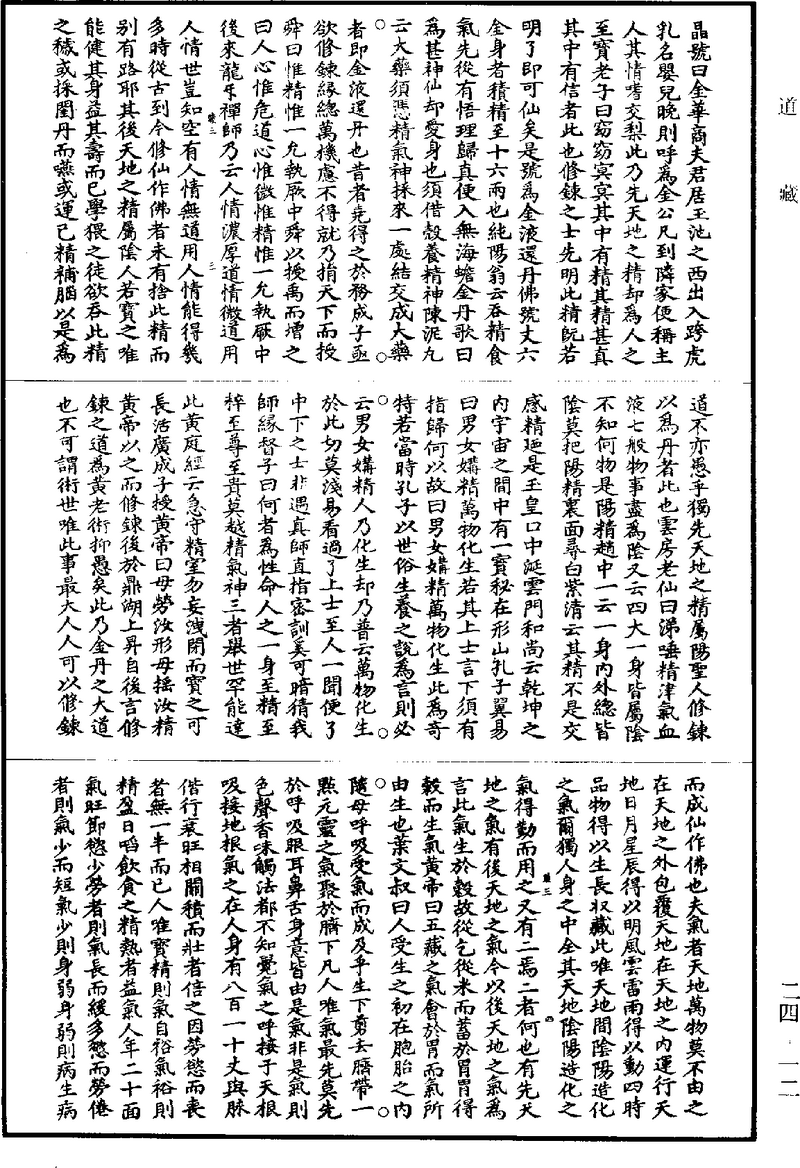 道藏
二四·一二
晶號曰金華商夫君居玉池之西出入跨虎
乳名嬰兒晚則呼為金公凡到隣家便稱主
人其情嗜交梨此乃先天地之精却為人之
至寶老子曰窈窈冥冥其中有精其精甚真
其中有信者此也修鍊之士先明此精旣若
明了即可仙矣是號為金液還丹佛號丈六
金身者積精至十六兩也純陽翁云吞精食
氣先從有悟理歸真便入無海蟾金丹歌曰
為甚神仙却愛身也須借殼養精神陳泥九
云大藥須憑精氣神採來一處結交成大藥
者即金液還丹也昔者堯得之於務成子亟
欲修鍊緣總萬機慮不得就乃揹天下而授
舜曰惟精惟一允執厥中舜以授禹而增之
曰人心惟危道心惟微惟精惟一允執厥中
後來龍牙禪師乃云人情濃厚道情微道用
人情世豈知空有人情無道用人情能得幾
多時從古到今修仙作佛者未有捨此精而
別有路耶其後天地之精屬陰人若寶之唯
能健其身益其壽而已學猥之徒欲吞此精
之穢或採閨丹而嚥或運己精補腦以是為
道不亦愚乎獨先天地之精屬陽聖人修鍊
以為丹者此也雲房老仙曰涕唾精津氣血
液七般物事盡為陰又云四大一身皆屬陰
不知何物是陽精趙中一云一身內外總皆
陰莫把陽精裏面尋白紫清云其精不是交
感精廼是玉皇口中涎雲門和尚云乾坤之
內宇宙之間中有一寶秘在形山孔子翼易
曰男女媾精萬物化生若其上士言下須有
指歸何以故曰男女媾精萬物化生此為奇
特若當時孔子以世俗生養之說為言則必
云男女媾精人乃化生却乃普云萬物化生
於此切莫淺易看過了上士至人一聞便了
中下之士非遇真師直指密訓奚可暗猜我
師緣督子曰何者為性命人之一身至精至
粹至尊至貴莫越精氣神三者舉世罕能達
此黃庭經云急守精室勿妄洩閉而寶之可
長活廣成子授黃帝曰毋勞汝形毋搖汝精
黃帝以之而修鍊後於鼎湖上昇自後言修
鍊之道為黃老術抑愚矣此乃金丹之大道
也不可謂術世唯此事最大人人可以修鍊
而成仙作佛也夫氣者天地萬物莫不由之
在天地之外包覆天地在天地之內運行天
地日月星辰得以明風雲雷雨得以動四時
品物得以生長収藏此唯天地間陰陽造化
之氣爾獨人身之中全其天地陰陽造化之
氣得勤而用之又有二焉二者何也有先天
地之氣有後天地之氣今以後天地之氣為
言此氣生於穀故從乞從米而蓄於胃胃得
穀而生氣黃帝曰五藏之氣會於胃而氣所
由生也葉文叔曰人受生之初在胞胎之內
隨母呼吸受氣而成及乎生下剪去臍帶一
點元靈之氣聚於臍下凡人唯氣最先莫先
於呼吸眼耳鼻舌身意皆由是氣非是氣則
色聲香味觸法都不知覺氣之呼接于天根
吸接地根氣之在人身有八百一十丈與脉
偕行衰旺相關積而壯者倍之因勞慾而喪
者無一半而已人唯寶精則氣自裕氣裕則
精盈日啗飲食之精熱者益氣人年二十面
氣旺節慾少勞者則氣長而緩多慾而勞倦
者則氣少而短氣少則身弱身弱則病生病